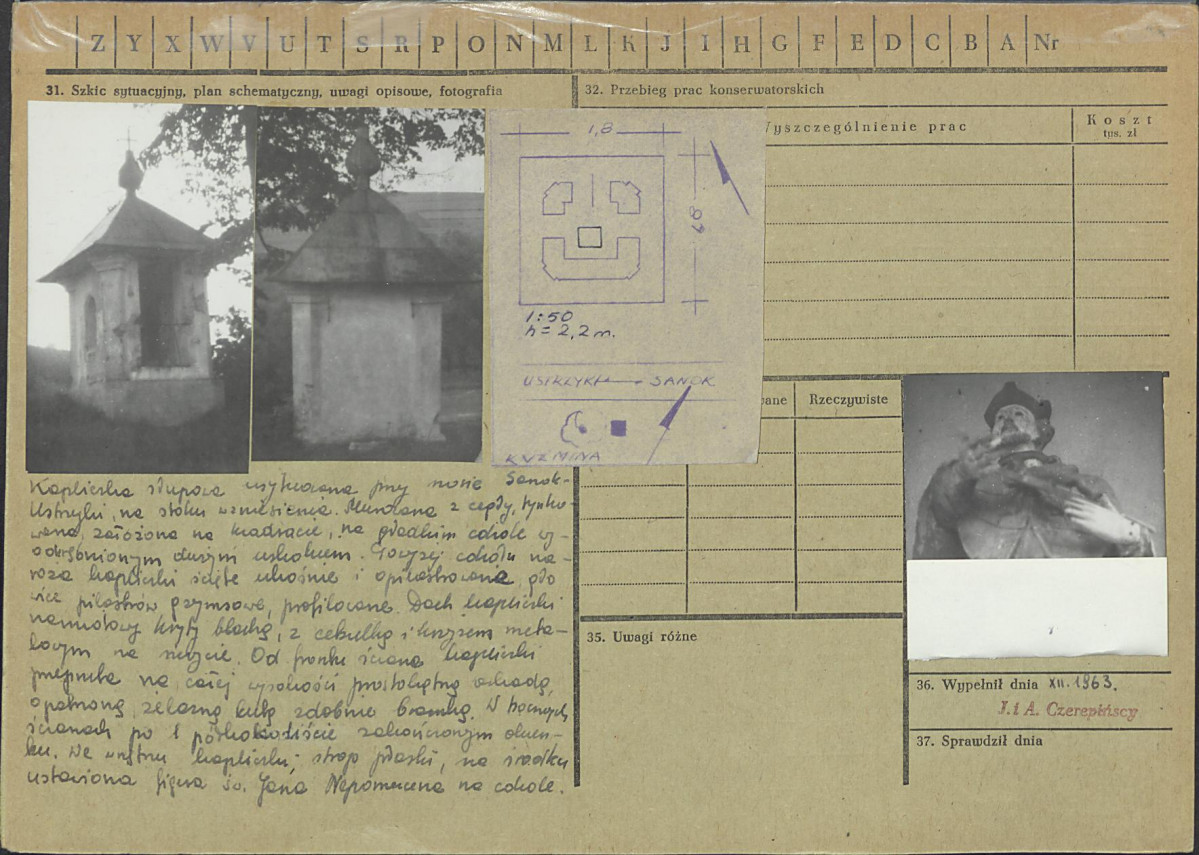 Z Y X W V U T S R P O N M L K J I H G F E D C B A Nr
31. Szkic sytuacyjny, plan schematyczny, uwagi opisowe, fotografia
32. Przebieg prac konserwatorskich
yszczególnienie prac
Koszt
tys. zł
1,8
1:50
h = 2,2 m.
USTRZYKI SANOK
KUZMINA
ane
Rzeczywiste
Kapliczka słupowa usytuowana przy trasie Sanok-
Ustrzyki, na stoku wzniesienia. Murowana z cegły, tynko-
wana, założona na kwadracie, na gładkim cokole wy-
odrębnionym dużym uskokiem. Powyżej cokołu na-
roża kapliczki ścięte ukośnie i opilastrowane, gło
wice pilastrów gzymsowe, profilowane. Dach kapliczki
namiotowy kryty blachą, z cebulką i krzyżem meta-
lowym na szczycie. Od frontu ściana kapliczki
przepruta na całej wysokości prostokątną arkadą,
opatrzoną żelazną kutą zdobnie bramką. W bocznych
ścianach po 1 półkoliście zakończonym okien-
ku. We wnętrzu kapliczki, strop płaski, na środku
ustawiona figura św. Jana Nepomucena na cokole.
35. Uwagi różne
36. Wypełnił dnia XII.1963.
J. i A. Czerepińscy
37. Sprawdził dnia